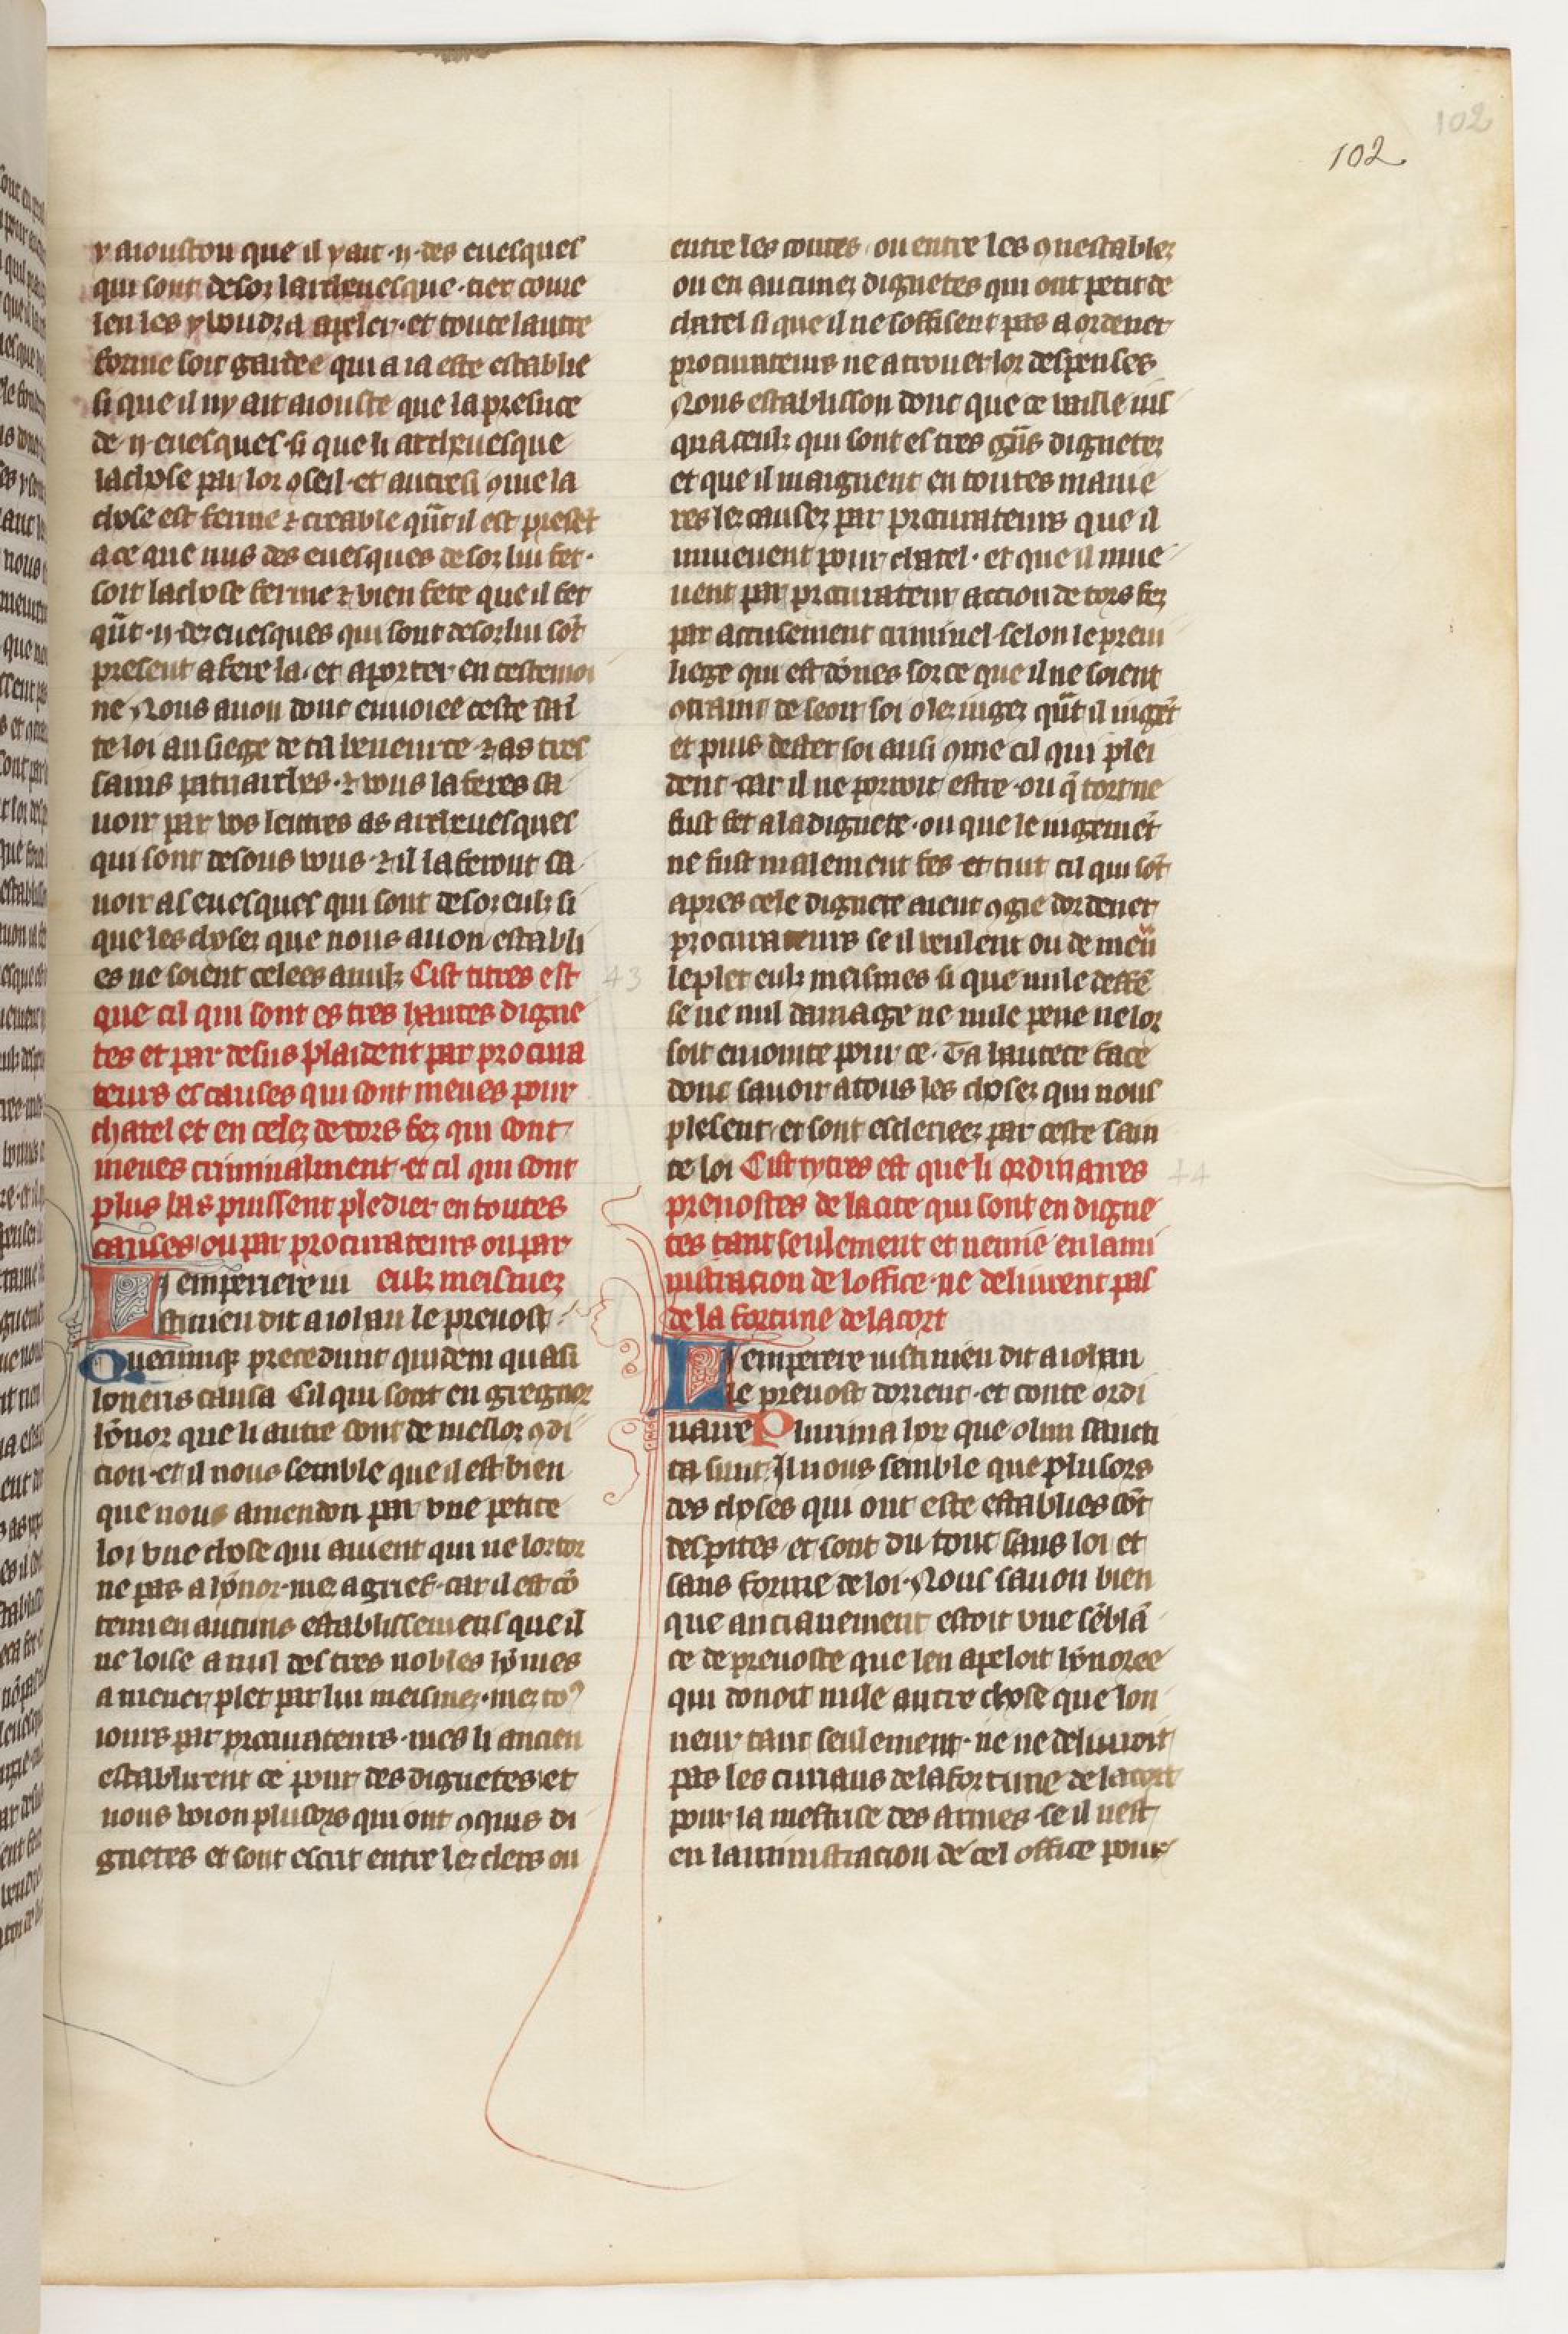 102
102
y aiouston que il y ait .ii. des euesques
qui sont desoz larcheuesque. tier come
len les y voudra apeler. et toute lautre
forme soit gardee qui a ia este establie
si que il ny ait aiouste que la presence
de .ii. euesques. si que li archeuesque
lachose par lor ɔseil. et autresi ɔme la
chose est ferme ⁊ creable qñt il est preset
a ce que nus des euesques desoz lui fet.
soit lachose ferme ⁊ bien fete que il fet
qñt .ii. dez euesques qui sont desoz lui sōt
present a fere la. et aporter en testemoi
ne Nous auon donc enuoiee ceste sai
te loi au siege de ta beneurte. ⁊ as tres
sains patriarches. ⁊ vous la feres sa
uoir par vos lettres as archeuesques
qui sont desous vous. ⁊ il la feront sa
uoir as euesques qui sont desoz eulz si
que les chosez que nous auon establi
es ne soient celees a nulz Cist titres est
43
que cil qui sont es tres hautes digne
tes et par desus plaident par procura
teurs es causes qui sont meues pour
chatel et en celez de tors fez qui sont
meues criminalment et cil qui sont
plus bas puissent pledier en toutes
causes ou par procurateurs ou par
Lemperiere iu eulz meismez
stinien dit a iohan le preuost.
Quecumqz precedunt quidem quasi
honeris causa Cil qui sont en gregnor
hōnor que li autre sont de mellor ɔdi
cion. et il nous semble que il est bien
que nous amendon par vne petite
loi vne chose qui auient qui ne lor tor
ne pas a hōnor. mez a grief. car il est cō
tenu en aucuns establissemens que il
ne loise a nul des tres nobles hōmes
a mener plet par lui meismez. mez to⁹
iours par procurateurs. mes li ancien
establirent ce pour des dignetes et
nous voion plusors qui ont ɔquis di
gnetes et sont escrit entre lez clers ou
entre les contes ou entre les ɔnestablez
ou en aucunez dignetes qui ont petit de
chatel si que il ne soffisent pas a ordener
procurateurs ne a trouer lor despenses
Nous establisson donc que ce vaille nis
qua ceulz qui sont es tres gñs dignetez
et que il maignent en toutes manie
res lez causez par procurateurs que il
mueuent pour chatel. et que il mue
uent par procurateur accion de tors fez
par accusement criminel selon le preui
liege qui est dōnes sor ce que il ne soient
ɔtraint de seoir soi o lez iugez qñt il iugēt
et puis dester soi ausi ɔme cil qui plei
dent. car il ne porroit estre. ou q̄ tort ne
fust fet a la dignete. ou que le iugemēt
ne fust malement fes et tuit cil qui sōt
apres cele dignete aient ɔgie dordener
procurateurs se il veulent ou de meñ
le plet eulz meismes si que nule deffē
se ne nul damage ne nule pene ne lor
soit eniointe pour ce. Ta hautece face
donc sauoir a tous les chosez qui nous
plesent et sont escleriez par ceste sain
te loi Cist tytres est que li ordinaires
44
preuostes de la cite qui sont en digne
tes tant seulement et nemie en lami
nistracion de loffice ne deliurent pas
de la fortune de la cort
Lemperere iustinien dit a iohan
le preuost dorient. et conte ordi
naire Plurima hoz que olim sancti
ta sunt Il nous semble que plusors
des choses qui ont este establies sōt
despites et sont du tout sans loi et
sans forme de loi. Nous sauon bien
que ancianement estoit vne sēblā
ce de preuoste que len apeloit hōnoree
qui donoit nule autre chose que lon
neur tant seulement. ne ne deliuroit
pas les curiaus de la fortune de la cort
pour la mestrise des armes. se il nest
en laministracion de cel office pour